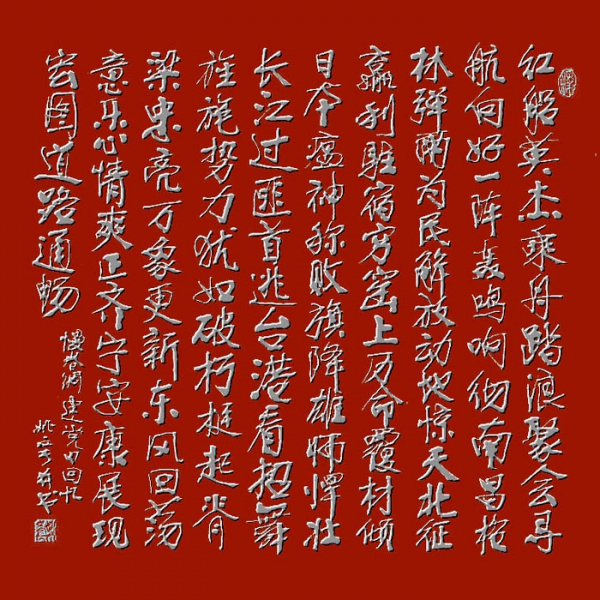 红船英杰乘舟踏浪聚会寻
航向好一阵轰鸣响彻南昌枪
林弹雨为民解放动地惊天北征
赢利驻宿穷窑上命覆材倾
日本瘟神称败旗降雄师悍壮
长江过匪首逃台港看扭舞
旌势力犹如破朽挺起脊
梁忠亮万象更新东风回荡
意乐心情爽正齐宁安康展现
宏图道路通畅
慢卷绸建党日回忆
姚书